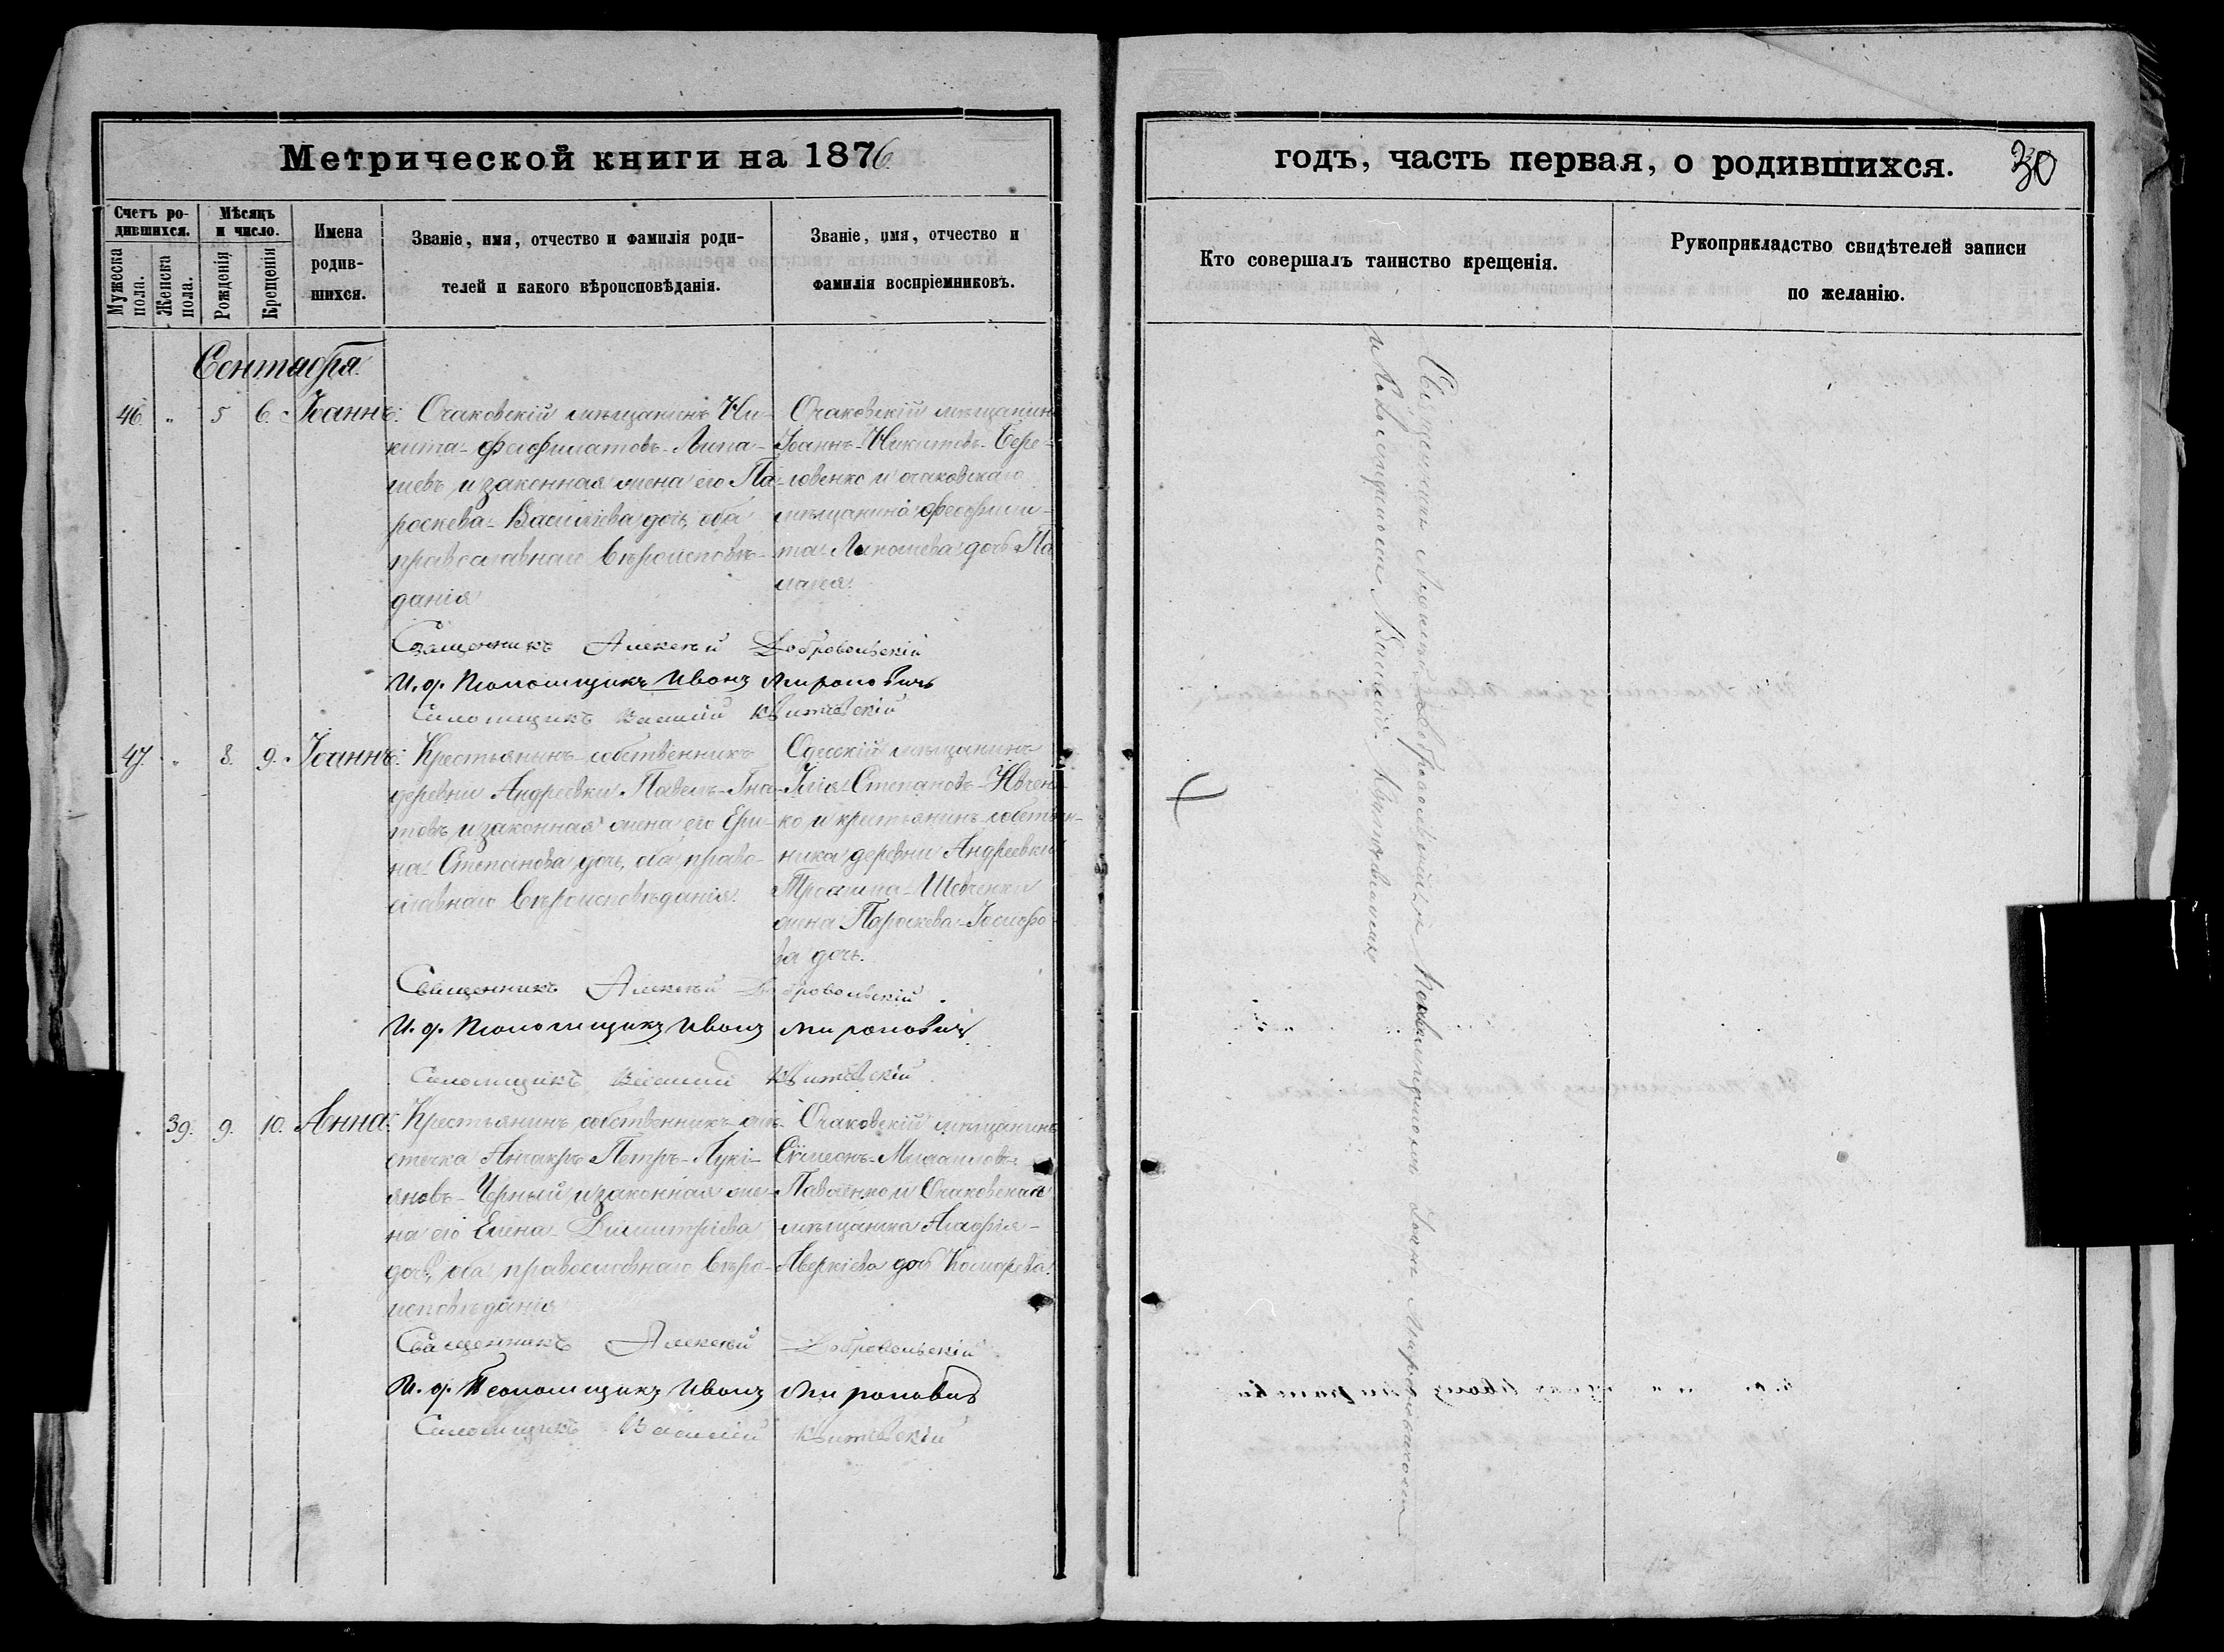 Метрической книги на 1876
Счетъ родившихся.
Мужеска пола.
Женска пола.
Мѣсяцъ и число.
Рожденія
Крещенія
Имена родив-
шихся.
Званіе, имя, отчество и фамилія роди-
телей и какого вѣроисповѣданія.
Званіе, имя, отчество и
фамилія воспріемниковъ.
Сентября
46. " 5 6. Іоаннъ:
Очаковскій мѣщанинъ Ни-
кита Феофилатовъ
и законная жена его Па-
раскева Васильева дочь, оба
православнаго вѣроисповѣ-
данія
Очаковскій мѣщанинъ
Іоаннъ Никитовъ Бере-
говенко и очаковскаго
мѣщанина
дочь
Священникъ Алексѣй Добровольскій
И. д. Псаломщика Иванъ Мироновичъ
Псаломщикъ Василій Квитковскій
47. " 8. 9. Іоаннъ:
Крестьянинъ собственникъ
деревни Андреевки Павелъ Гна-
товъ и законная жена его Ири-
на Степанова дочь, оба право-
славнаго вѣроисповѣданія.
Одесскій мѣщанинъ
Илія Степановъ Ивчен-
ко и крестьянина собствен-
ника деревни Андреевки
Трофима Шевченка
жена Параскева Іосифо-
ва дочь.
Священникъ Алексѣй Добровольскій.
И. д. Псаломщика Иванъ Мироновичъ
Псаломщикъ Василій Квитковскій
39. 9. 10. Анна:
Крестьянинъ собственникъ мѣ-
стечка Анчакракъ Петръ Лукі-
яновъ Черный и законная же-
на его Елена Димитріева
дочь, оба православнаго вѣро-
исповѣданія
Очаковскій мѣщанинъ
Сѵмеонъ Михаиловъ
Павленко и Очаковская
мѣщанка Агафія
Аверкіева дочь
Священникъ Алексѣй Добровольскій
И. д. Псаломщика Иванъ Мироновичъ
Псаломщикъ Василій Квитковскій
годъ, часть первая, о родившихся.
30
Кто совершалъ таинство крещенія.
Рукоприкладство свидѣтелей записи
по желанію.
Священникъ Алексѣй Добровольскій съ Псаломщикомъ Іоанномъ Мироновичемъ
и Псаломщикомъ Василіемъ Квитковскимъ